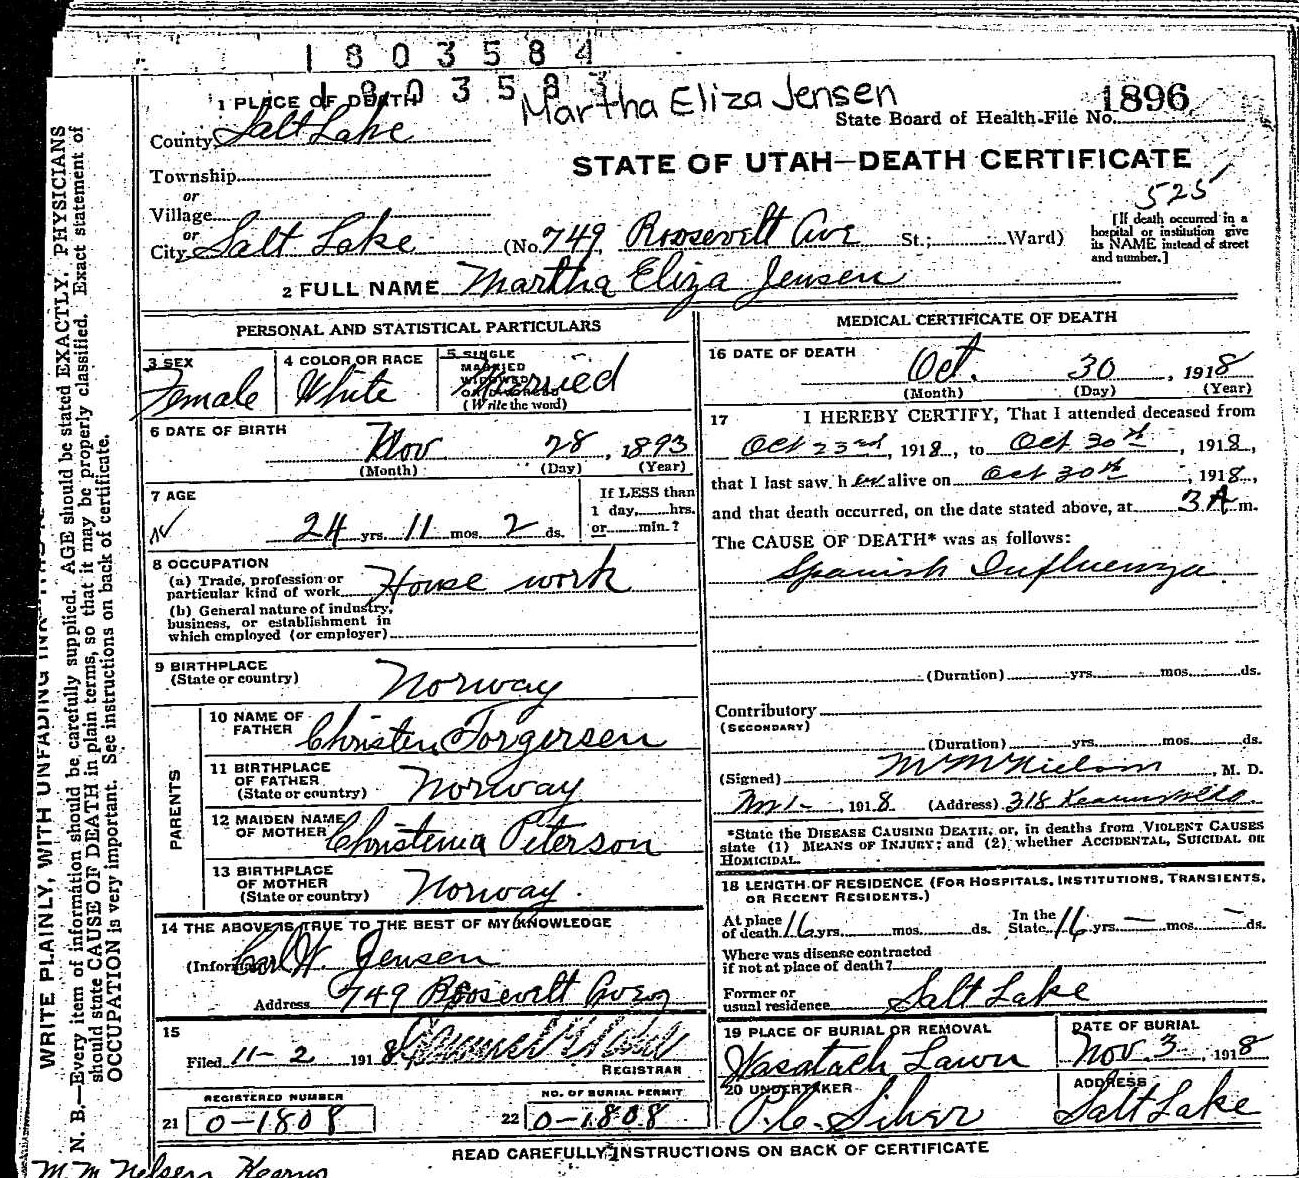 1803584
1803583
Martha Eliza Jensen
1896
State Board of Health-File No.
1 PLACE OF DEATH
County Salt Lake
STATE OF UTAH—DEATH CERTIFICATE
525
Township
or
Village
or
City Salt Lake (No. 749 Roosevelt Ave St.; Ward)
[If death occurred in a
hospital or institution give
its NAME instead of street
and number.]
2 FULL NAME Martha Eliza Jensen
PERSONAL AND STATISTICAL PARTICULARS
3 SEX
Female
4 COLOR OR RACE
White
5 SINGLE
MARRIED
WIDOWED
OR DIVORCED
(Write the word)
Married
6 DATE OF BIRTH
Nov 28, 1893
(Month) (Day) (Year)
7 AGE
24 yrs. 11 mos. 2 ds.
If LESS than
1 day, hrs.
or min.?
8 OCCUPATION
(a) Trade, profession or
particular kind of work House work
(b) General nature of industry,
business, or establishment in
which employed (or employer)
9 BIRTHPLACE
(State or country)
Norway
PARENTS
10 NAME OF
FATHER
Christen Torgersen
11 BIRTHPLACE
OF FATHER
(State or country)
Norway
12 MAIDEN NAME
OF MOTHER
Christenia Peterson
13 BIRTHPLACE
OF MOTHER
(State or country)
Norway.
14 THE ABOVE IS TRUE TO THE BEST OF MY KNOWLEDGE
(Informant) Carl W. Jensen
Address 749 Roosevelt Ave
15
Filed 11-2 1918
REGISTRAR
REGISTERED NUMBER
21 0-1808
NO. OF BURIAL PERMIT
22 0-1808
MEDICAL CERTIFICATE OF DEATH
16 DATE OF DEATH
Oct. 30, 1918
(Month) (Day) (Year)
17 I HEREBY CERTIFY, That I attended deceased from
Oct 23rd, 1918, to Oct 30th, 1918,
that I last saw h er alive on Oct 30th, 1918,
and that death occurred, on the date stated above, at 3 A m.
The CAUSE OF DEATH* was as follows:
Spanish Influenza
(Duration) yrs. mos. ds.
Contributory
(SECONDARY)
(Duration) yrs. mos. ds.
(Signed) M M Nielson, M. D.
Nov 1-, 1918 (Address) 318 Kearns Bldg.
*State the DISEASE CAUSING DEATH, or, in deaths from VIOLENT CAUSES
state (1) MEANS OF INJURY; and (2) whether ACCIDENTAL, SUICIDAL OR
HOMICIDAL.
18 LENGTH OF RESIDENCE (FOR HOSPITALS, INSTITUTIONS, TRANSIENTS,
OR RECENT RESIDENTS.)
At place
of death 16 yrs. mos. ds.
In the
State 16 yrs. — mos. — ds.
Where was disease contracted
if not at place of death?
Former or
usual residence Salt Lake
19 PLACE OF BURIAL OR REMOVAL
Wasatach Lawn
DATE OF BURIAL
Nov. 3, 1918
20 UNDERTAKER
ADDRESS
Salt Lake
READ CAREFULLY INSTRUCTIONS ON BACK OF CERTIFICATE
M. M Nelsen Kearns
WRITE PLAINLY, WITH UNFADING INK
N. B.—Every item of information should be carefully supplied. AGE should be stated EXACTLY. PHYSICIANS
should state CAUSE OF DEATH in plain terms, so that it may be properly classified. Exact statement of
OCCUPATION is very important. See instructions on back of certificate.